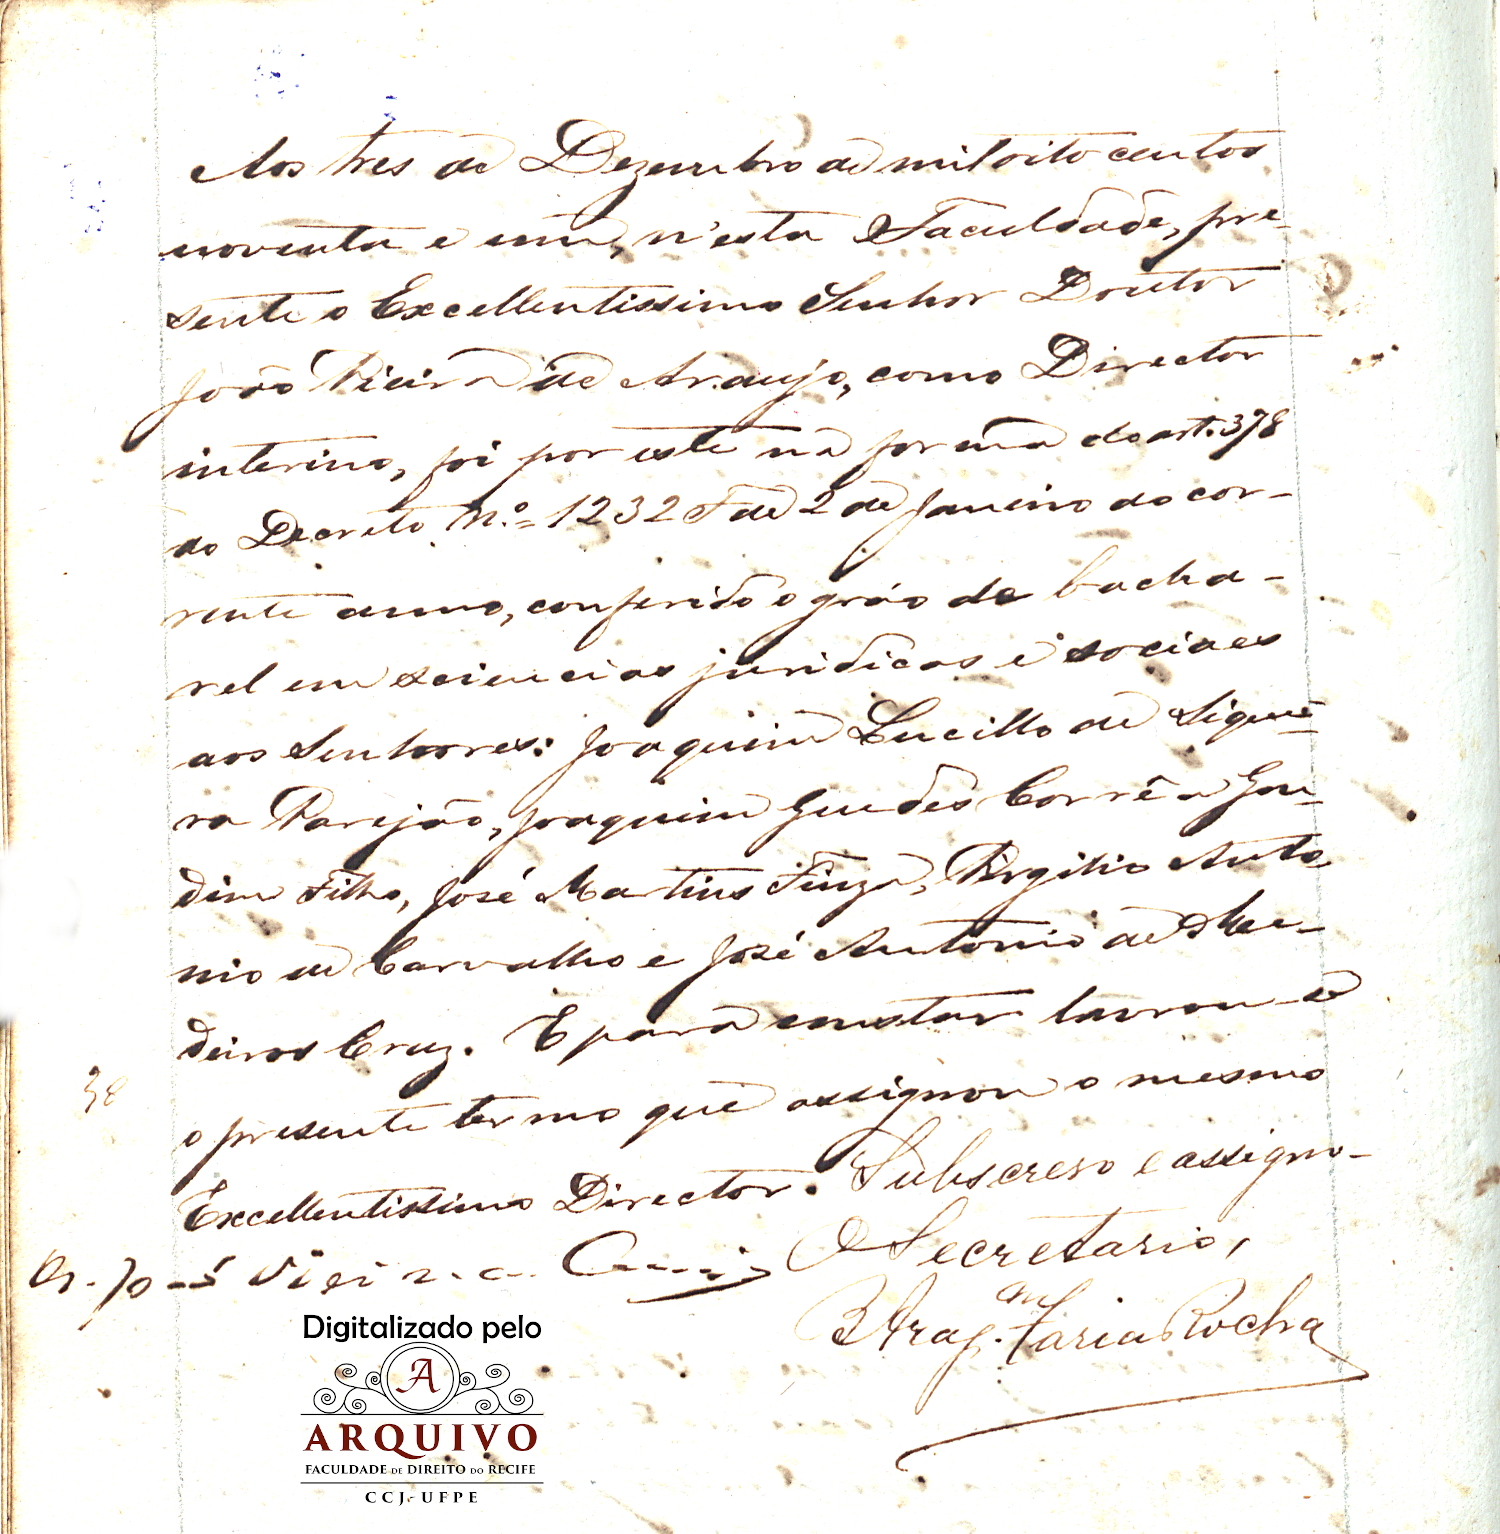 Aos tres de Dezembro de mil oito centos
noventa e um, n'esta Faculdade, pre-
sente o Excellentissimo Senhor Doutor
João Vieira de Araujo, como Director
interino, foi por este na forma do art. 378
do Decreto N.º 1232 F de 2 de Janeiro do cor-
rente anno, conferido o gráo de bacha-
rel em sciencias juridicas e sociaes
aos Senhores: Joaquim Lucillo de Siquei-
ra Varejão, Joaquim Guedes Corrêa Gon-
dim Filho, José Martins Fiuza, Virgilio Anto-
nio de Carvalho e José Antonio de Me-
deiros Cruz. E para constar lavrou-se
o presente termo que assignou o mesmo
Excellentissimo Director. Subscrevo e assigno-
O Secretario,
Dr. João Vieira de Araujo
B. Arag. Faria Rocha
Digitalizado pelo
A
ARQUIVO
FACULDADE DE DIREITO DO RECIFE
CCJ-UFPE